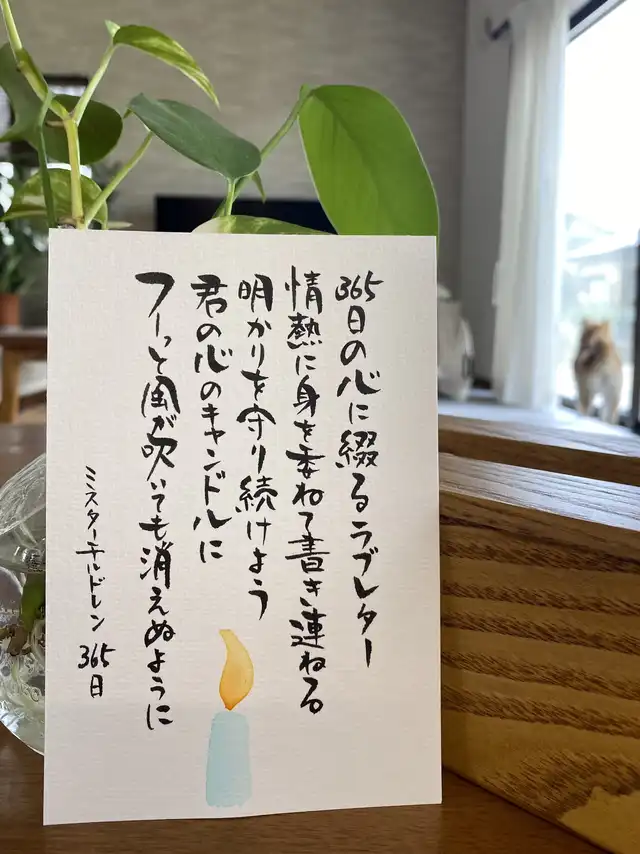 365日の心に綴るラブレター
情熱に身を委ねて書き連ねる
明かりを守り続けよう
君の心のキャンドルに
フーっと風が吹いても消えぬように
ミスターチルドレン 365日